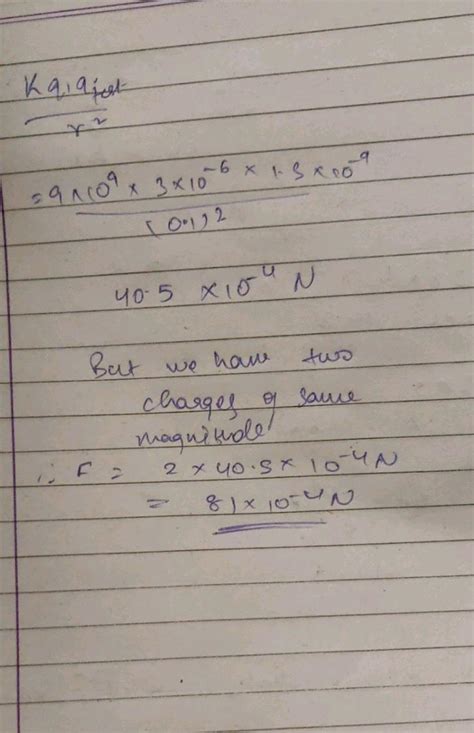 K q1 q test
r²
= 9 × 10⁹ × 3 × 10⁻⁶ × 1.5 × 10⁻⁹
(0.1)²
40.5 × 10⁻⁴ N
But we have two
charges of same
magnitude
∴ F = 2 × 40.5 × 10⁻⁴ N
= 81 × 10⁻⁴ N